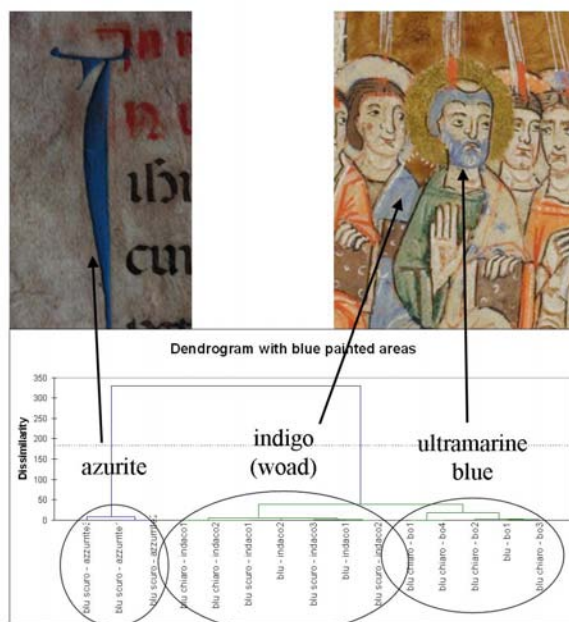 Dendrogram with blue painted areas
350
300
250
200
150
100
50
0
Dissimilarity
azurite
indigo
(woad)
ultramarine
blue
blu scuro - azzurrite
blu scuro - azzurrite
blu scuro - azzurrite
blu chiaro - indaco1
blu chiaro - indaco2
blu scuro - indaco1
blu - indaco2
blu scuro - indaco3
blu - indaco1
blu scuro - indaco2
blu chiaro - bo1
blu chiaro - bo4
blu chiaro - bo2
blu - bo1
blu chiaro - bo3